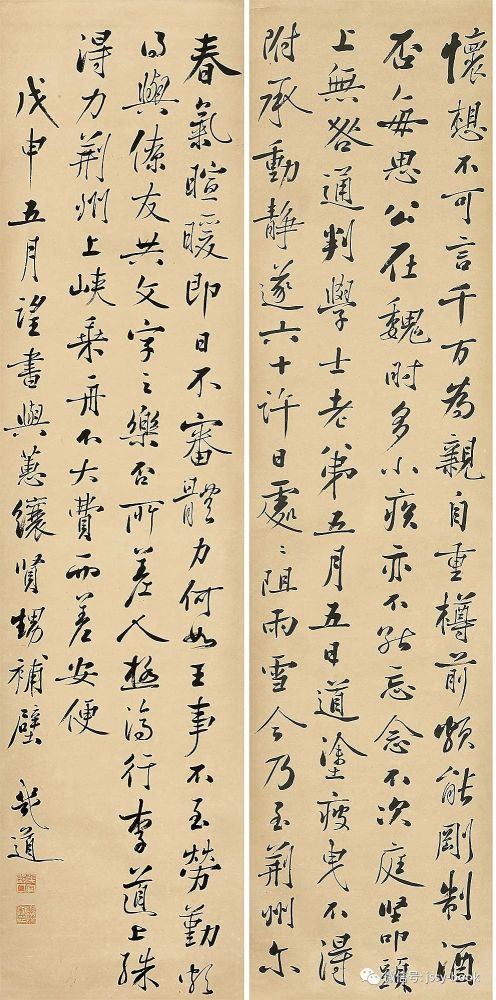 懷想不可言千万為親自重樽前頻能剛制酒
否每思公在魏時多小疾亦不能忘念不次庭堅叩頭
上無咎通判學士老弟五月五日道塗疲曳不得
附承動靜遂六十許日處〻阻雨雪今乃至荆州尔
春氣暄暖即日不審體力何如王事不至勞勤頗
得與僚友共文字之樂否所差人極濟行李道上殊
得力荆州上峽乘舟不大費而差安便
戊申五月望書與蕙纕賢甥補壁 道
微信号: jssy-book